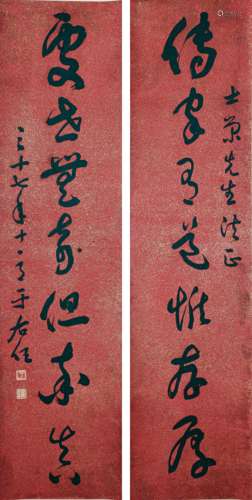 傳家有道惟存厚
士蘭先生法正
處世無奇但率真
三十七年十一月于右任